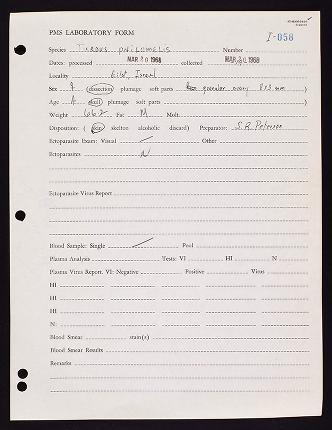 I-058
PMS LABORATORY FORM
Species Turdus philomelis Number
Dates: processed MAR 20 1968 collected MAR 20 1968
Locality Eilat Israel
Sex ♀ (dissection) plumage soft parts granular ovary 8x3 mm )
Age A (skull) plumage soft parts )
Weight 66.2 Fat M Molt
Disposition: (skin skelton alcoholic discard) Preparator: S.R. Peterson
Ectoparasite Exam: Visual Other
Ectoparasites N
Ectoparasite Virus Report
Blood Sample: Single Pool
Plasma Analysis Tests: VI HI N
Plasma Virus Report. VI: Negative Positive Virus
HI
HI
HI
N:
Blood Smear stain(s)
Blood Smear Results
Remarks